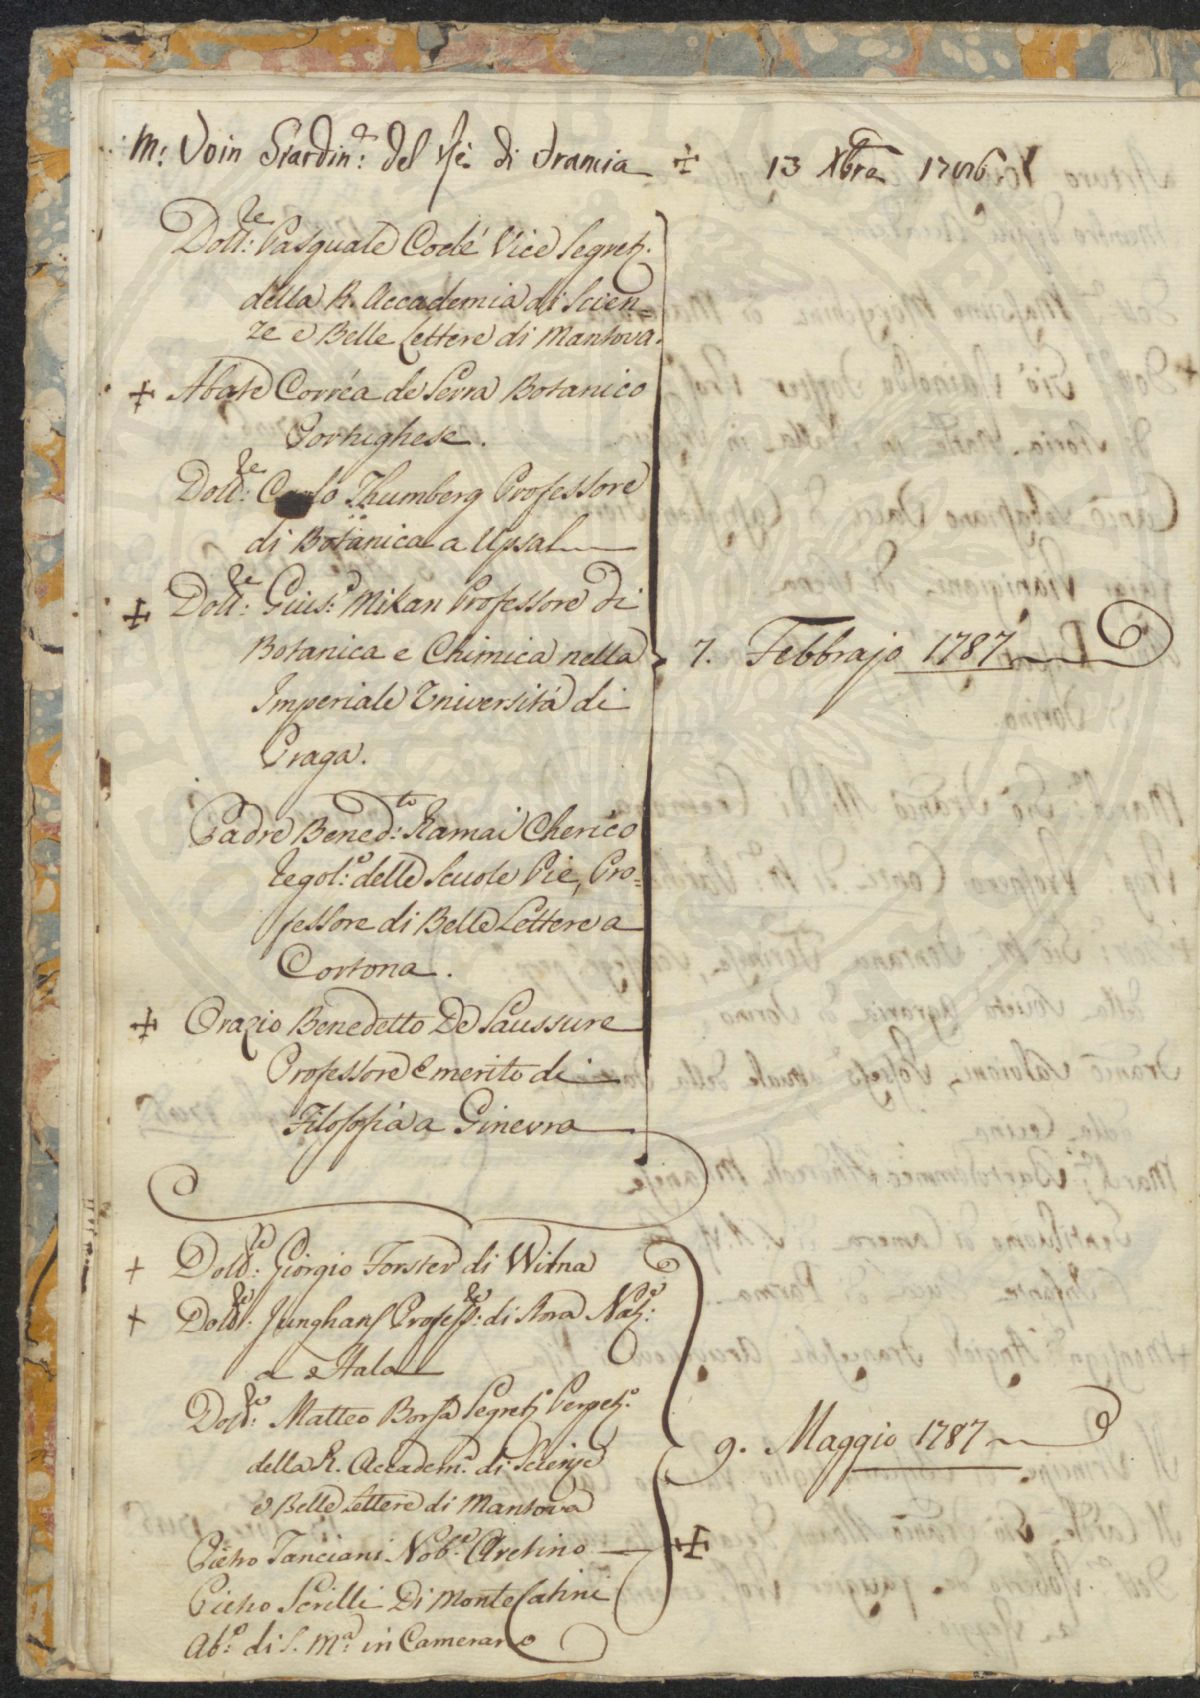 M.r Voin Giardin.e del Rè di Francia ✠ 13 Xbre 1786
Dott.re Pasquale Coelé Vice Segret.
della R. Accademia di Scien=
ze e Belle Lettere di Mantova.
✠ Abate Corréa de Serra Botanico
Portughese.
Dott.re Carlo Thumberg Professore
di Botanica a Upsal
✠ Dott.re Gius.e Mikan Professore di
Botanica e Chimica nella
Imperiale Università di
Praga.
7. Febbrajo 1787
Padre Bened.to Ramai Cherico
Regol.e delle Scuole Pie, Pro=
fessore di Belle Lettere a
Cortona.
✠ Orazio Benedetto De Saussure
Professore Emerito di
Filosofia a Ginevra
+ Dott.re Giorgio Forster di Wilna
+ Dott.re Junghans Profess.re di Stora Nat.e
a Hala
Dott.re Matteo Borsa Segret.o Perpet.o
della R. Accadem.a di Scienze
e Belle Lettere di Mantova
9. Maggio 1787
Pietro Tanciani Nob.e Aretino ✠
Pietro Scrilli Di Monte Catini
Ab.e di S. M.a in Camerario